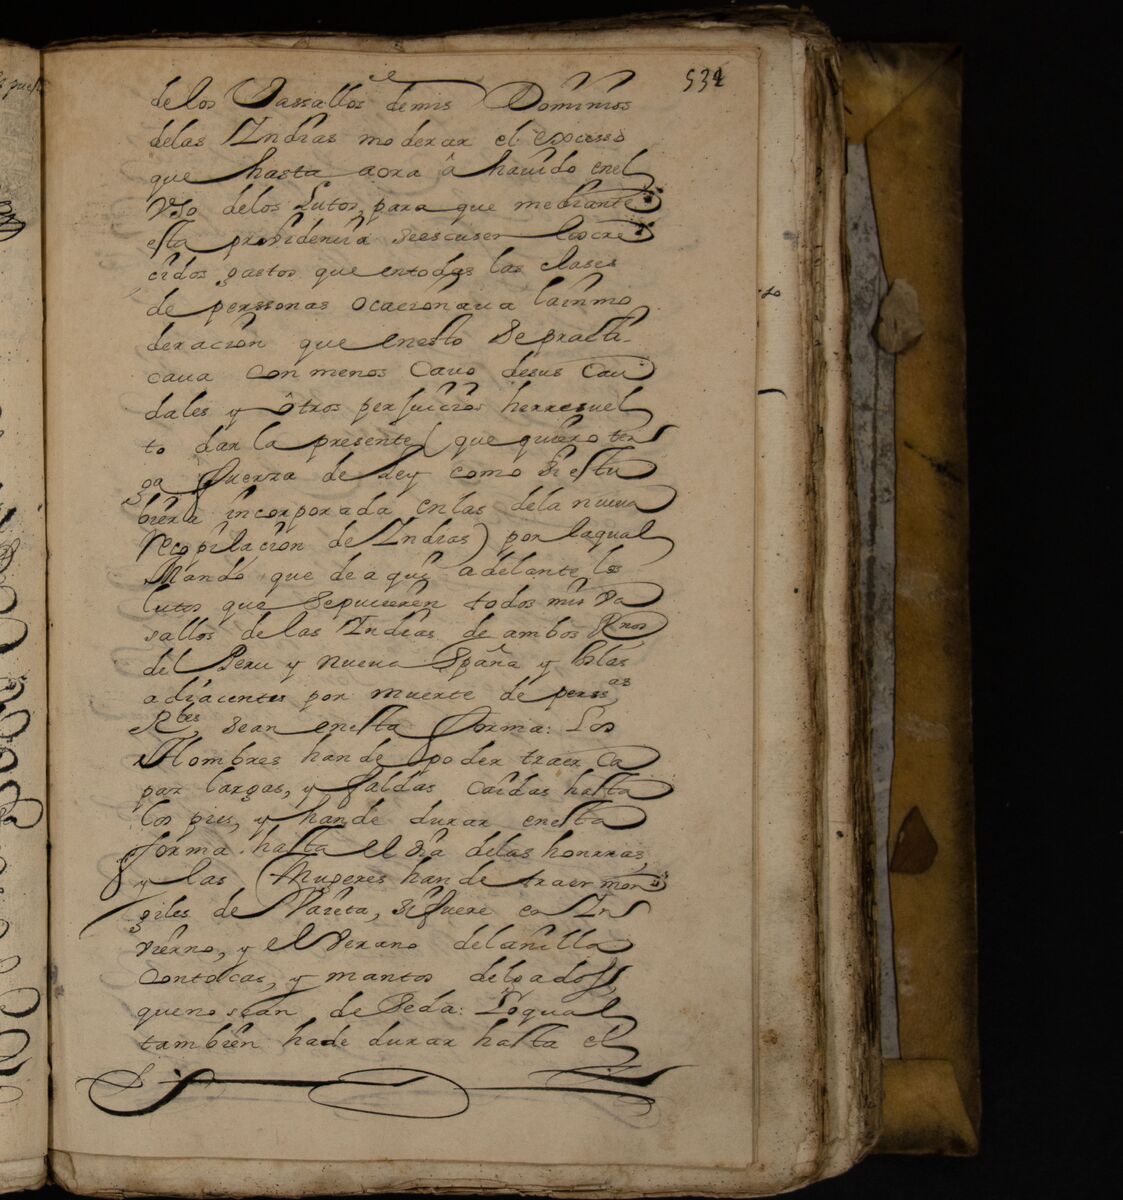 534
de los Vassallos de mis Dominios
de las Indias moderar el excesso
que hasta aora â hauido en el
Vso de los Lutos, para que mediante
esta providencia se escusen los cre
cidos gastos que en todas las clases
de perssonas ocacionaua la inmo
deracion que en esto se practi-
caua con menos cauo de sus cau
dales y ôtros perjuicios he rresuel
to dar la presente (que quiero ten
ga fuerza de Ley como si estu
biera incorporada en las de la nueua
Recopilacion de Indias) por la qual
Mando que de aqui adelante los
lutos que se pusieren todos mis va
sallos de las Indias de ambos Rnos
del Peru y nueua España y Islas
adjacentes por muerte de persas
Rles sean en esta forma: Los
Hombres han de poder traer ca
pas largas, y faldas caidas hasta
los pies, y han de durar en esta
forma hasta el dia de las honrras,
y las Mugeres han de traer mon
giles de Vaieta, si fuere en In
vierno, y el Verano de lanilla
con tocas, y mantos delgados
que no sean de Seda: Lo qual
tambien ha de durar hasta el